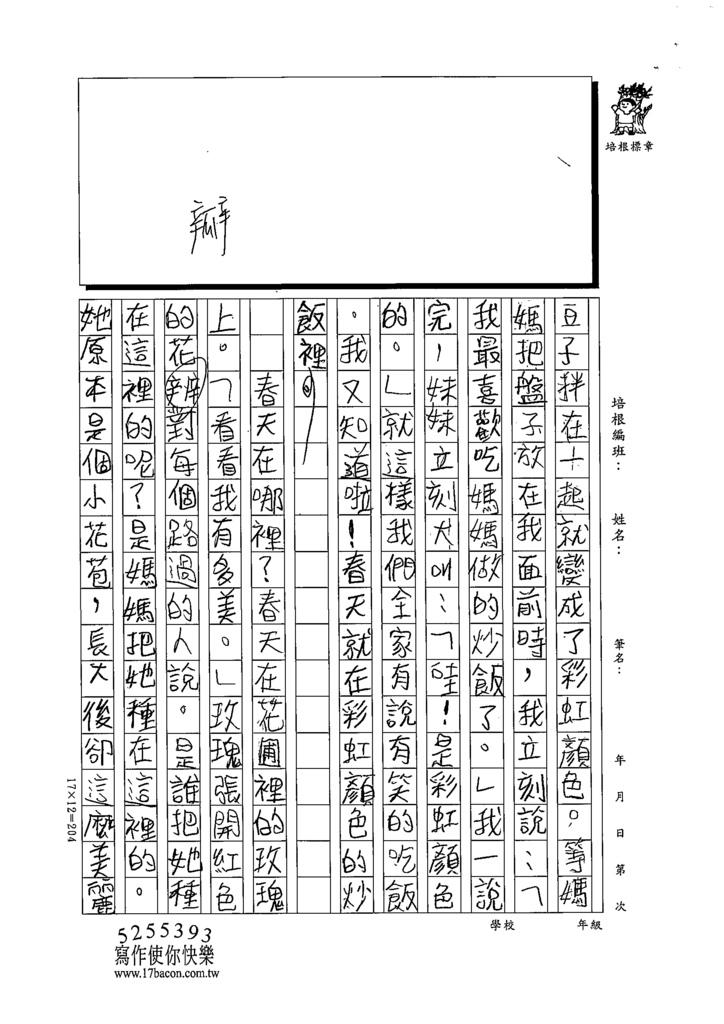 培根標章
瓣
豆子拌在一起就變成了彩虹顏色。等媽
媽把盤子放在我面前時，我立刻說：「
我最喜歡吃媽媽做的炒飯了。」我一說
完，妹妹立刻大叫：「哇！是彩虹顏色
的。」就這樣我們全家有說有笑的吃飯
。我又知道啦！春天就在彩虹顏色的炒
飯裡。
春天在哪裡？春天在花圃裡的玫瑰
上。「看看我有多美。」玫瑰張開紅色
的花瓣對每個路過的人說。是誰把她種
在這裡的呢？是媽媽把她種在這裡的。
她原本是個小花苞，長大後卻這麼美麗
培根編班： 姓名： 筆名： 年 月 日 第 次
學校 年級
17×12=204
5255393
寫作使你快樂
www.17bacon.com.tw